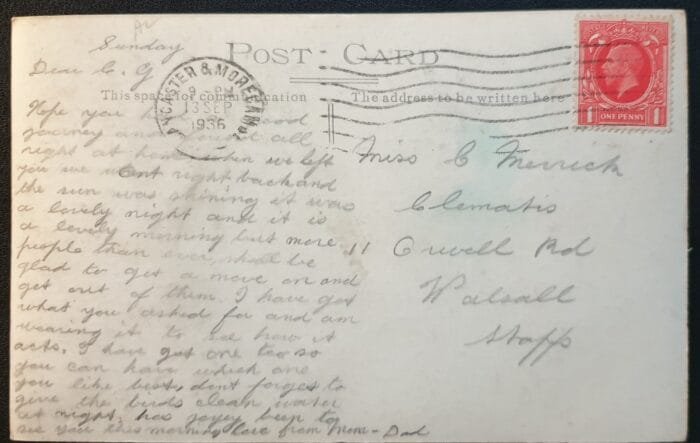 Sunday
POST CARD
LANCASTER & MORECAMBE
9 PM
13 SEP
1936
ONE PENNY
1 1
This space for communication
The address to be written here
Dear C. G
Hope you had a good
journey and found it all
right at home when we left
you we went right back and
the sun was shining it was
a lovely night and it is
a lovely morning but more
people than ever shall be
glad to get a move on and
get out of them. I have got
what you asked for and am
wearing it to see how it
acts, I have got one too so
you can have which one
you like best, dont forget to
give the birds clean water
at night, has been to
see you this morning love from Mom - Dad
Miss C Merrick
Clematis
11 Crwell Rd
Walsall
Staffs